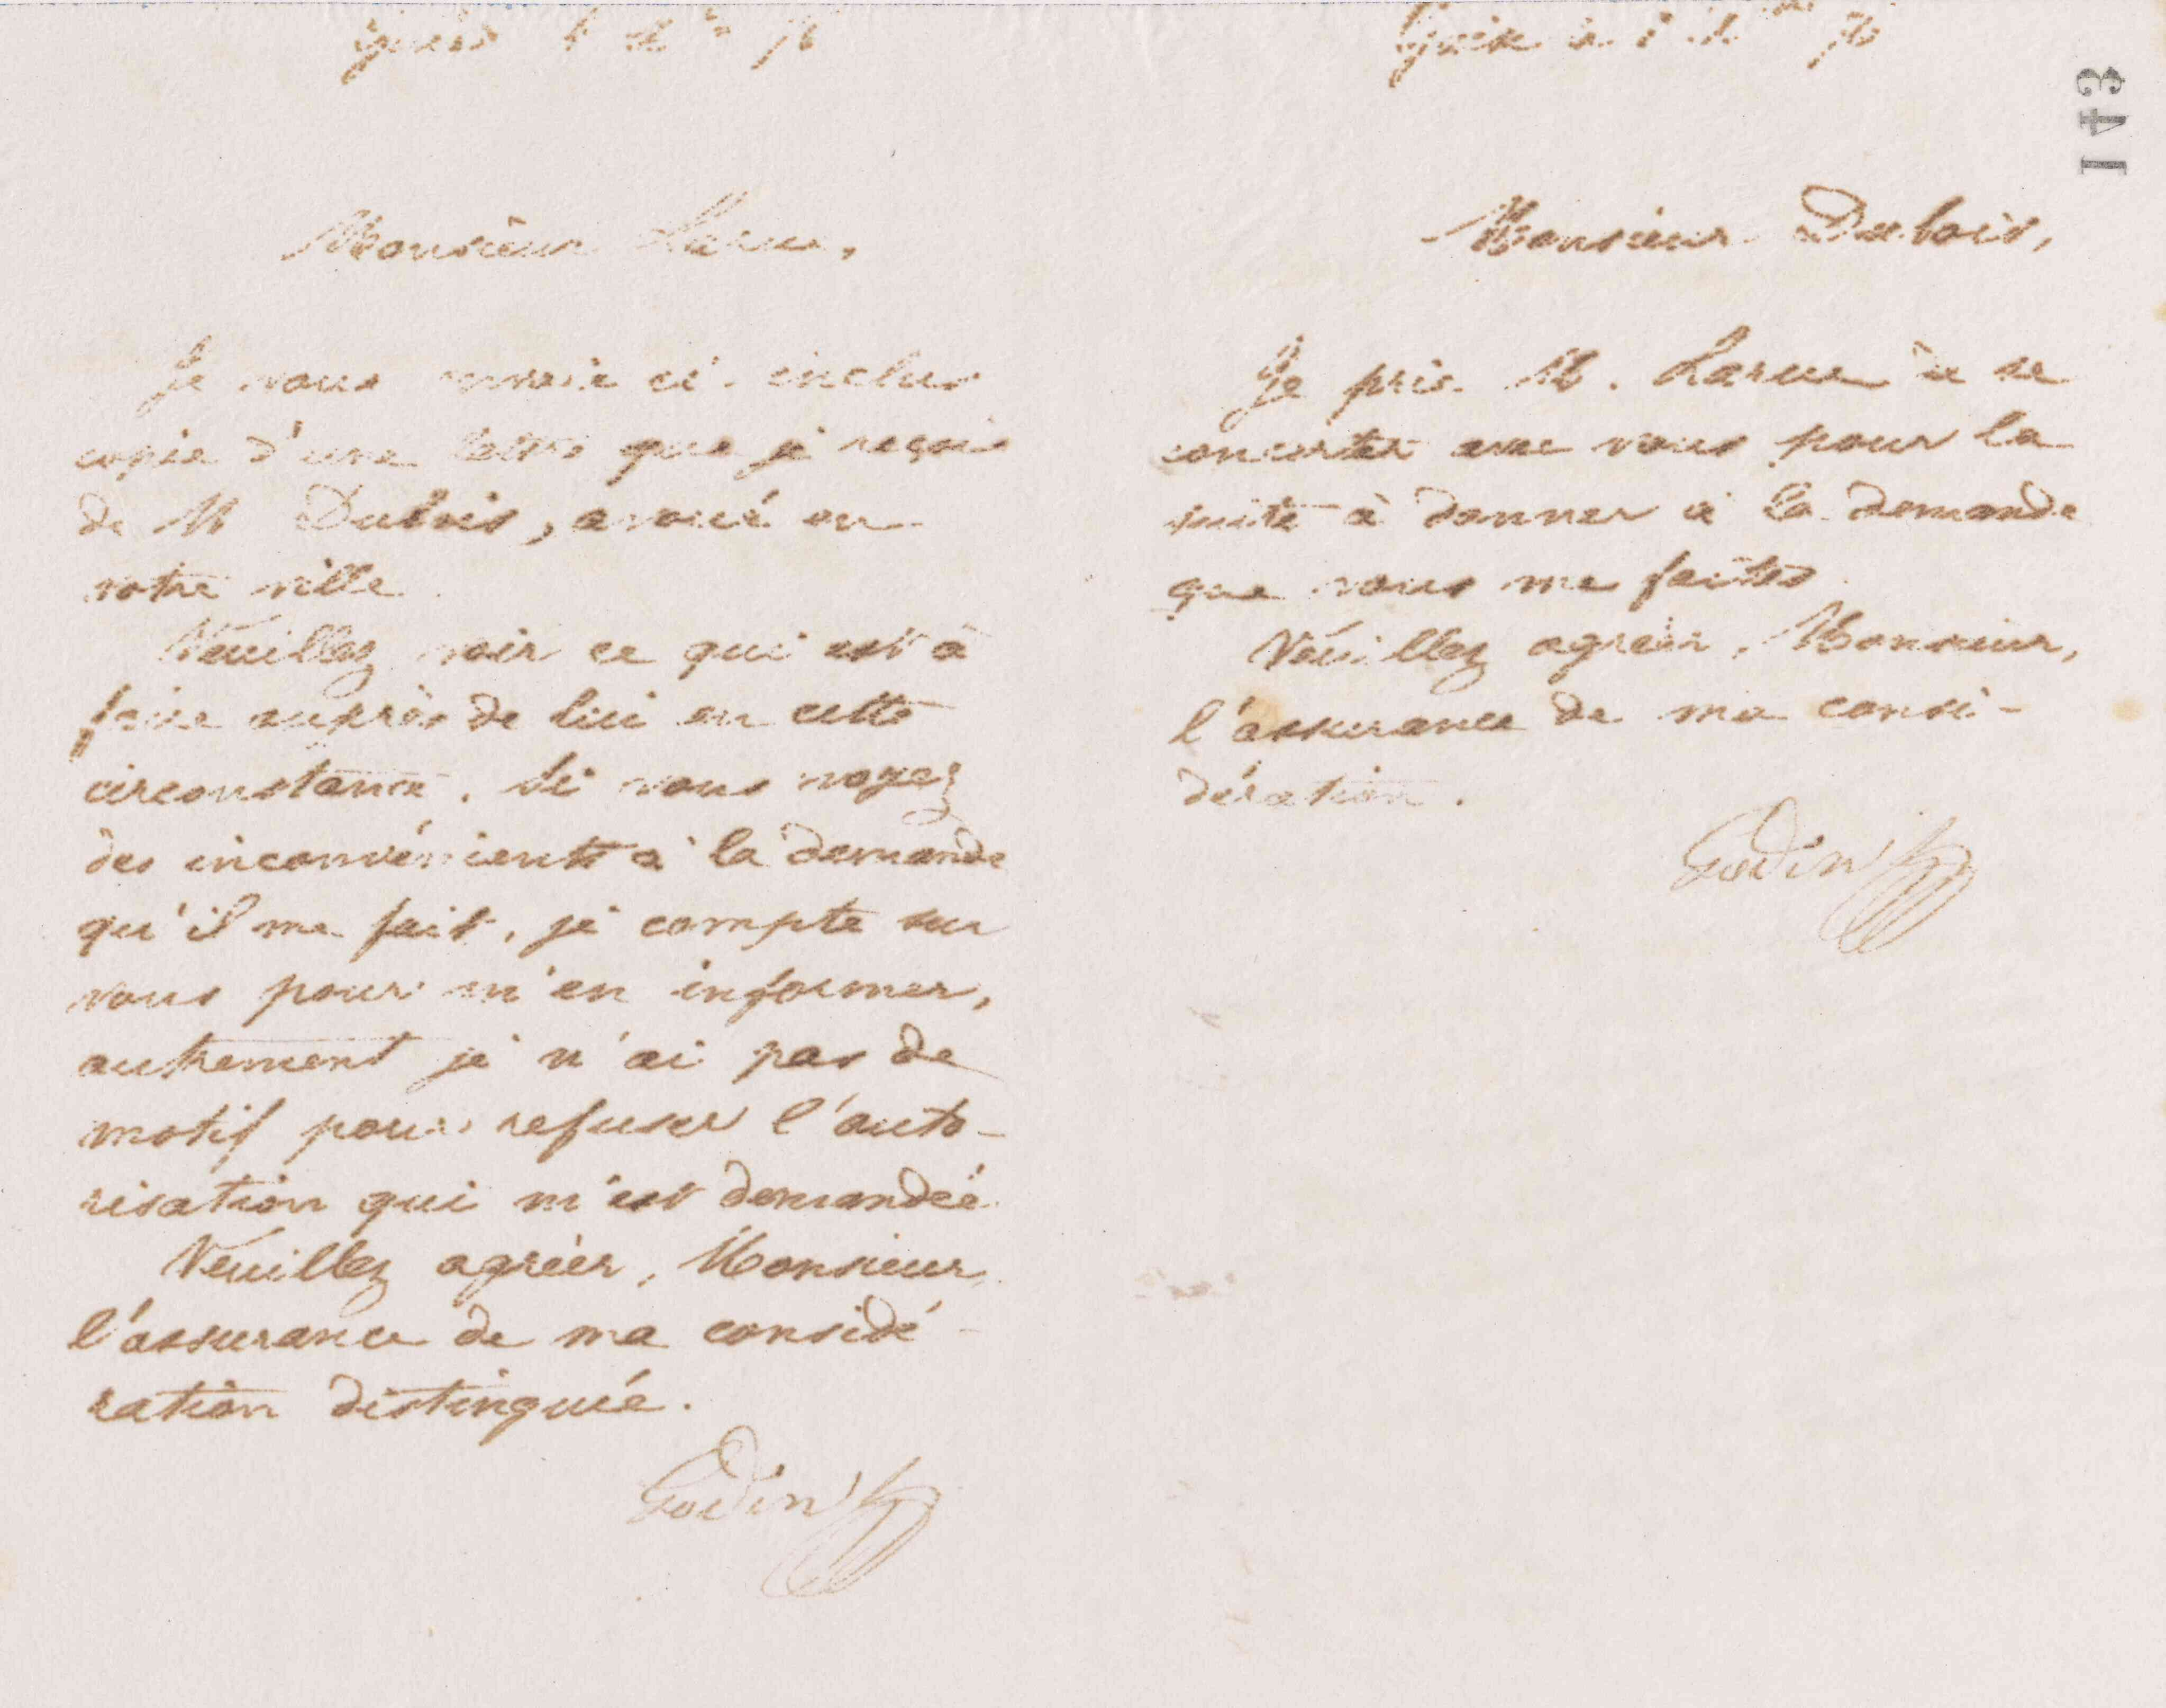 Guise
Monsieur Larue,
Je vous envoie ci-inclus
copie d'une lettre que je reçois
de M Dubois, avoué en
votre ville.
Veuillez voir ce qui est à
faire auprès de lui en cette
circonstance. Si vous voyez
des inconvénients à la demande
qu'il me fait, je compte sur
vous pour m'en informer,
autrement je n'ai pas de
motif pour refuser l'auto-
risation qui m'est demandée.
Veuillez agréer, Monsieur,
l'assurance de ma considé-
ration distinguée.
Godin
Guise
143
Monsieur Dubois,
Je prie M. Larue de se
concerter avec vous pour la
suite à donner à la demande
que vous me faites.
Veuillez agréer, Monsieur,
l'assurance de ma consi-
dération.
Godin